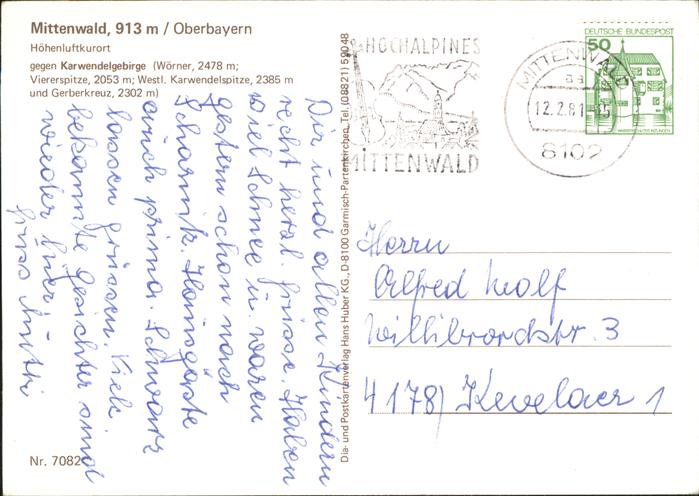 Mittenwald, 913 m / Oberbayern
Höhenluftkurort
gegen Karwendelgebirge (Wörner, 2478 m;
Viererspitze, 2053 m; Westl. Karwendelspitze, 2385 m
und Gerberkreuz, 2302 m)
HOCHALPINES
MITTENWALD
MITTENWALD
aa
12.2.81-15
8102
DEUTSCHE BUNDESPOST
50
WASSERSCHLOSS INZLINGEN
Dir und allen Kindern
recht herzl. Grüsse. Haben
viel Schnee u. waren
gestern schon nach
Scharnitz. Hausgäste
auch prima. Schwarz
lassen grüssen. Viele
bekannte Gesichter sind
wieder hier.
Gruss Mutti
Herrn
Alfred Wolf
Willibrordstr. 3
4178) Kevelaer 1
Dia- und Postkartenverlag Hans Huber KG., D-8100 Garmisch-Partenkirchen, Tel. (08821) 59048
Nr. 7082